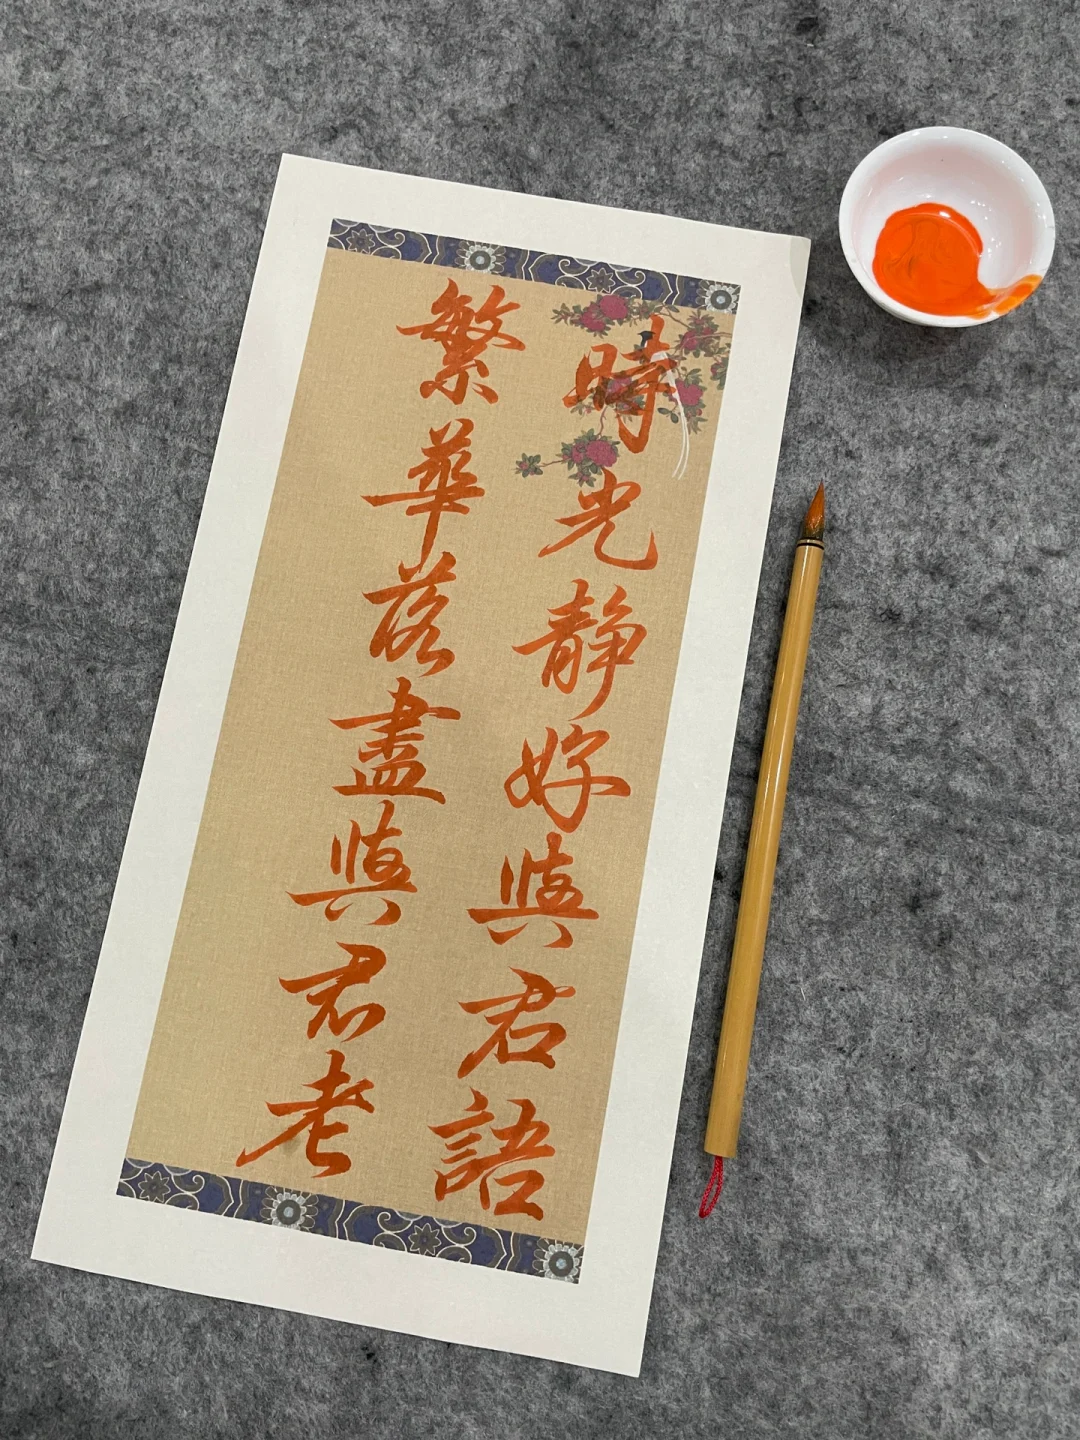 時光静好與君語
繁華落盡與君老